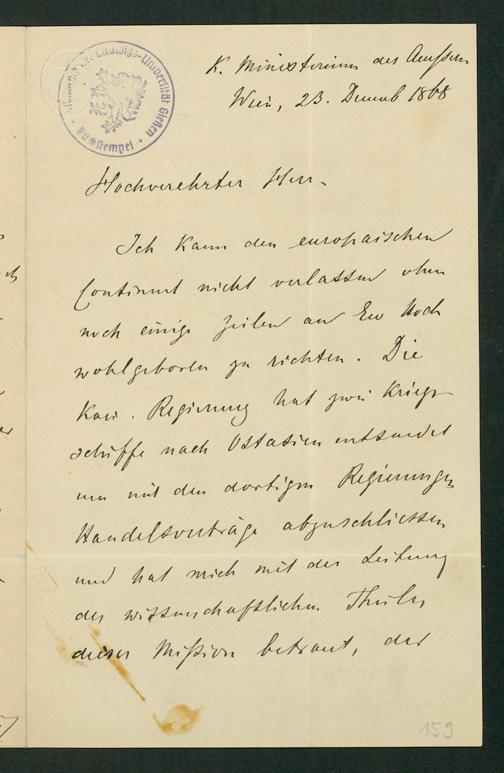 K. Ministerium des Aeussern
Wien, 23. Decemb 1868
Hochverehrter Herr.
Ich kann den europäischen
Continent nicht verlassen ohne
noch einige Zeilen an Ew Hoch
wohlgeboren zu richten. Die
Kais. Regierung hat zwei Kriegs-
schiffe nach Ostasien entsendet
um mit den dortigen Regierungen
Handelsverträge abzuschliessen
und hat mich mit der Leitung
des wissenschaftlichen Theiles
dieser Mission betraut, der
159
Ludwigs-Universität Gießen